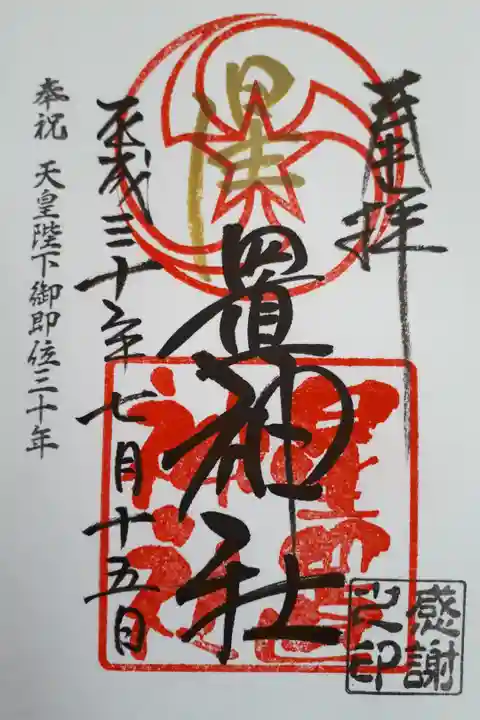 奉拝
星置神社
星置
神社
平成三十年七月十五日
奉祝 天皇陛下御即位三十年
感謝
之印